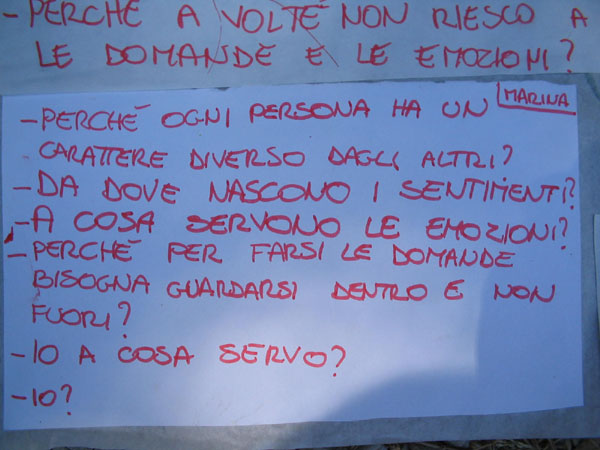 - PERCHÉ A VOLTE NON RIESCO A
LE DOMANDE E LE EMOZIONI?
MARINA
- PERCHÉ OGNI PERSONA HA UN
CARATTERE DIVERSO DAGLI ALTRI?
- DA DOVE NASCONO I SENTIMENTI?
- A COSA SERVONO LE EMOZIONI?
- PERCHÉ PER FARSI LE DOMANDE
BISOGNA GUARDARSI DENTRO E NON
FUORI?
- IO A COSA SERVO?
- IO?